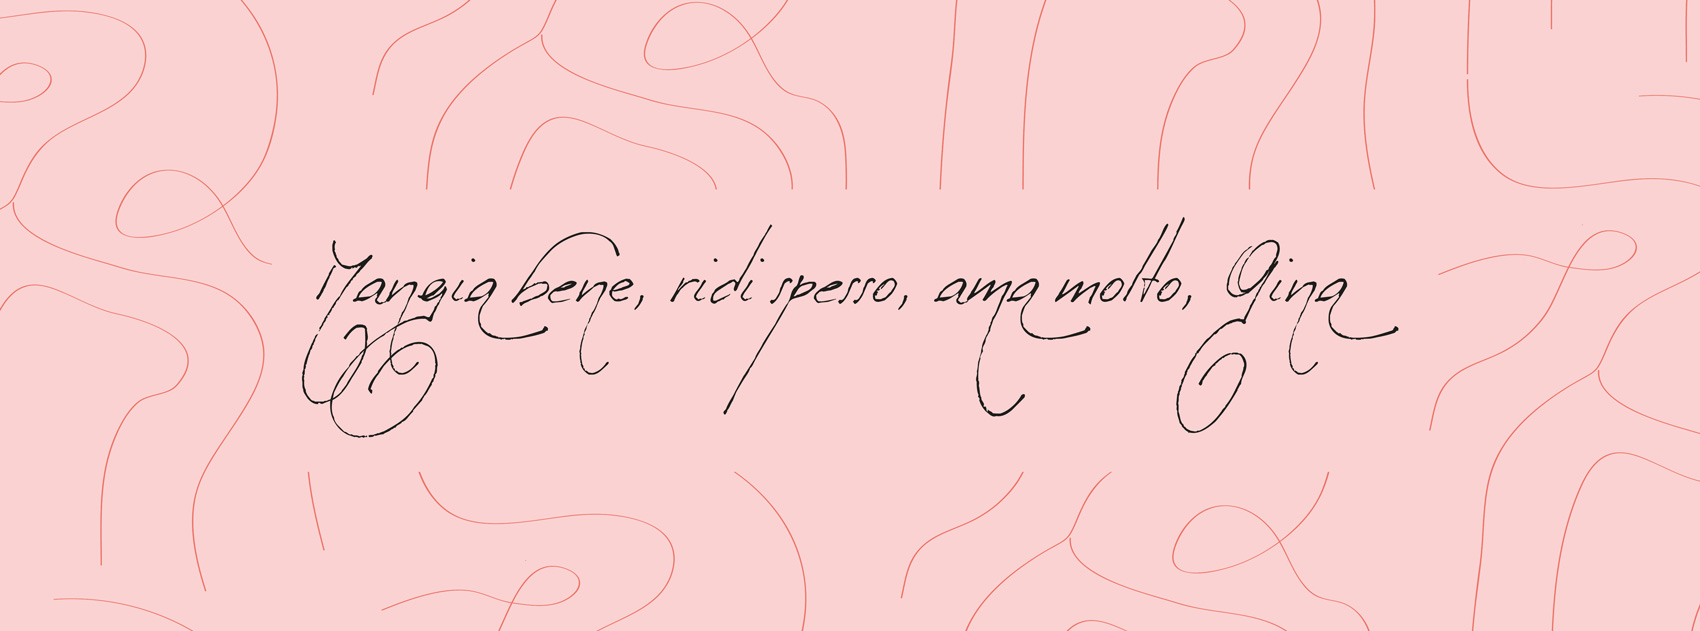 Mangia bene, ridi spesso, ama molto, Gina